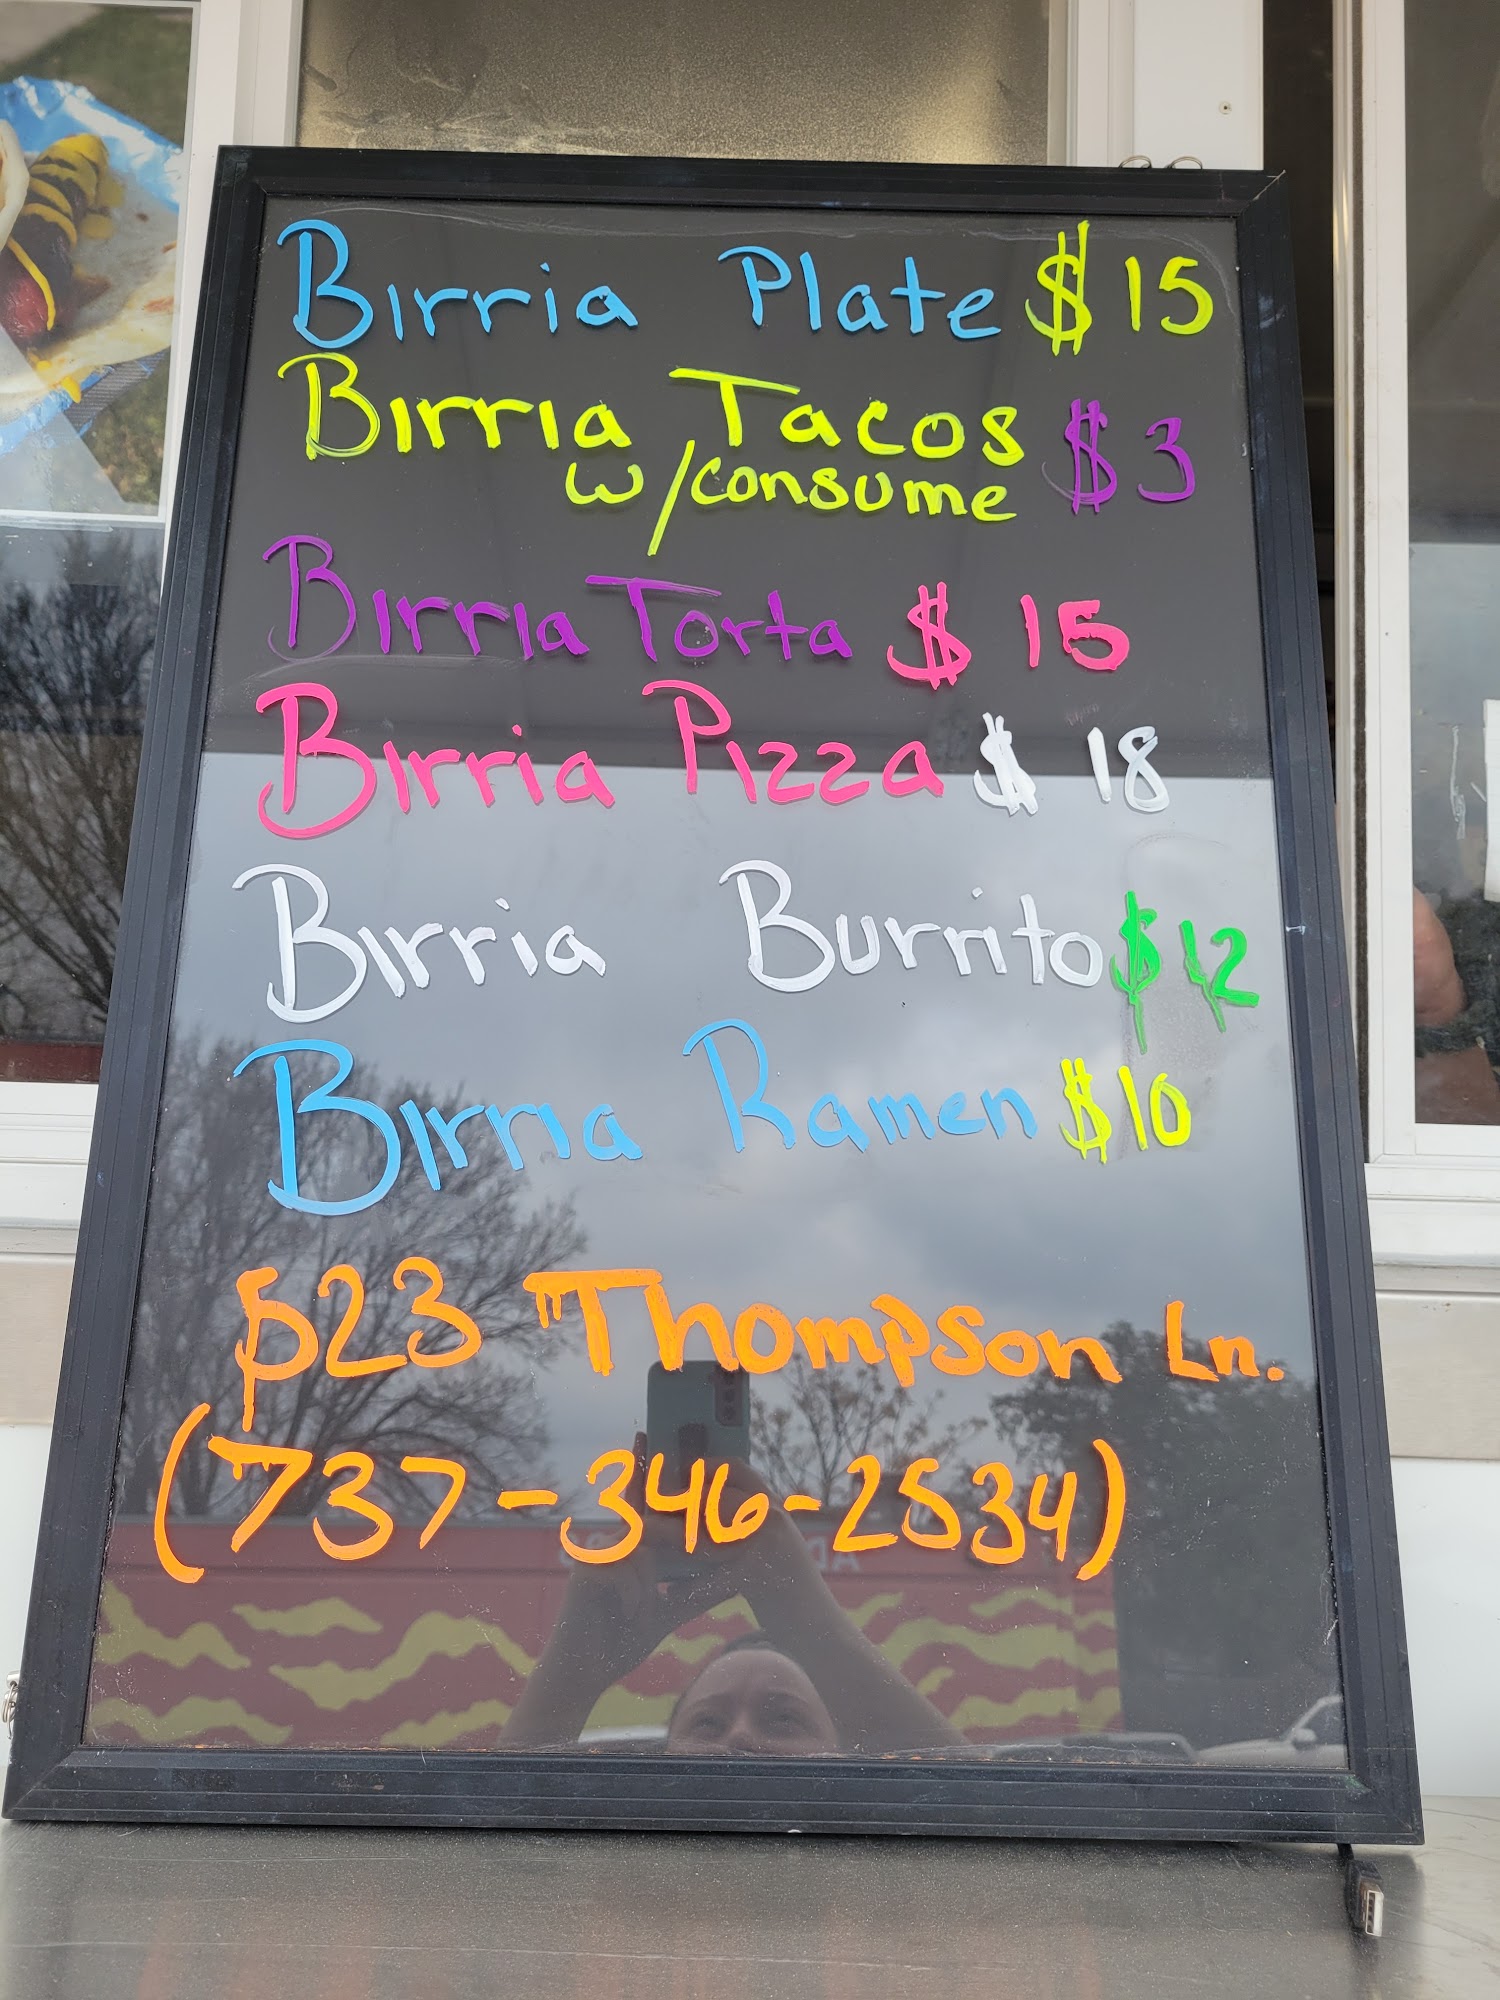 Birria Plate $15
Birria Tacos $3
w/consume
Birria Torta $15
Birria Pizza $18
Birria Burrito $12
Birria Ramen $10
523 Thompson Ln.
(737-346-2534)